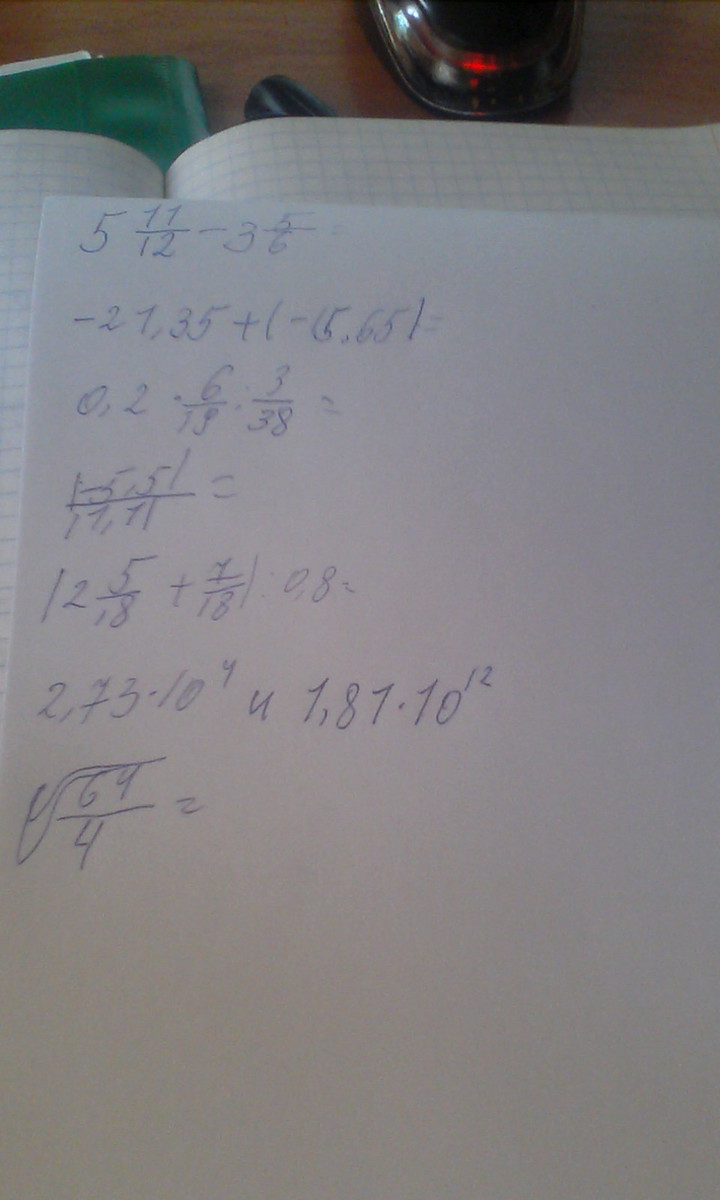 5 11/12 - 3 5/6 =
-21,35 + (-15,65) =
0,2 · 6/19 : 3/38 =
|-5,5| / |1,1| =
(2 5/18 + 7/18) : 0,8 =
2,73·10⁴ и 1,81·10¹²
√64/4 =